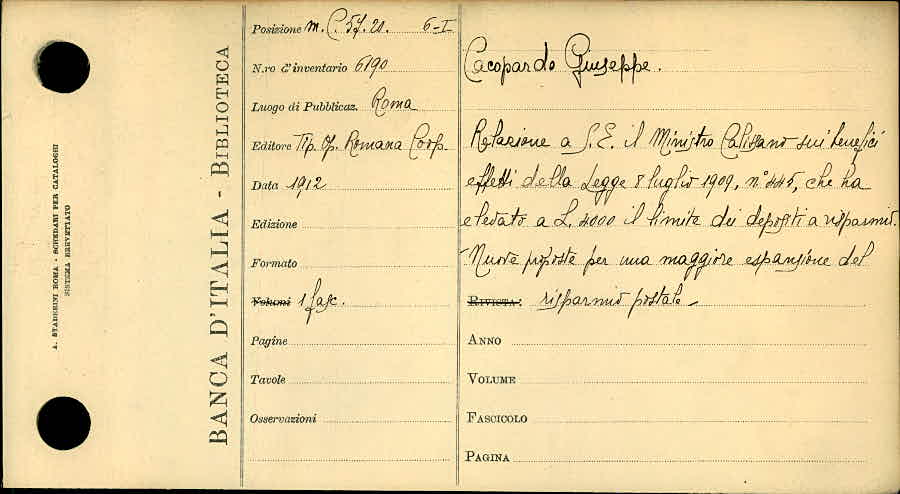 A. STADERINI ROMA - SCHEDARI PER CATALOGHI
SISTEMA BREVETTATO
BANCA D'ITALIA - BIBLIOTECA
Posizione m. C. 57. 20. 6-I
N.ro d'inventario 6190
Luogo di Pubblicaz. Roma
Editore Tip. Op. Romana Coop.
Data 1912
Edizione
Formato
Volumi 1 fasc.
Pagine
Tavole
Osservazioni
Cacopardo Giuseppe.
Relazione a S. E. il Ministro Calissano sui benefici
effetti della Legge 8 luglio 1909, n° 445, che ha
elevato a L. 4000 il limite dei depositi a risparmio.
Nuove proposte per una maggiore espansione del
RIVISTA: risparmio postale -
ANNO
VOLUME
FASCICOLO
PAGINA